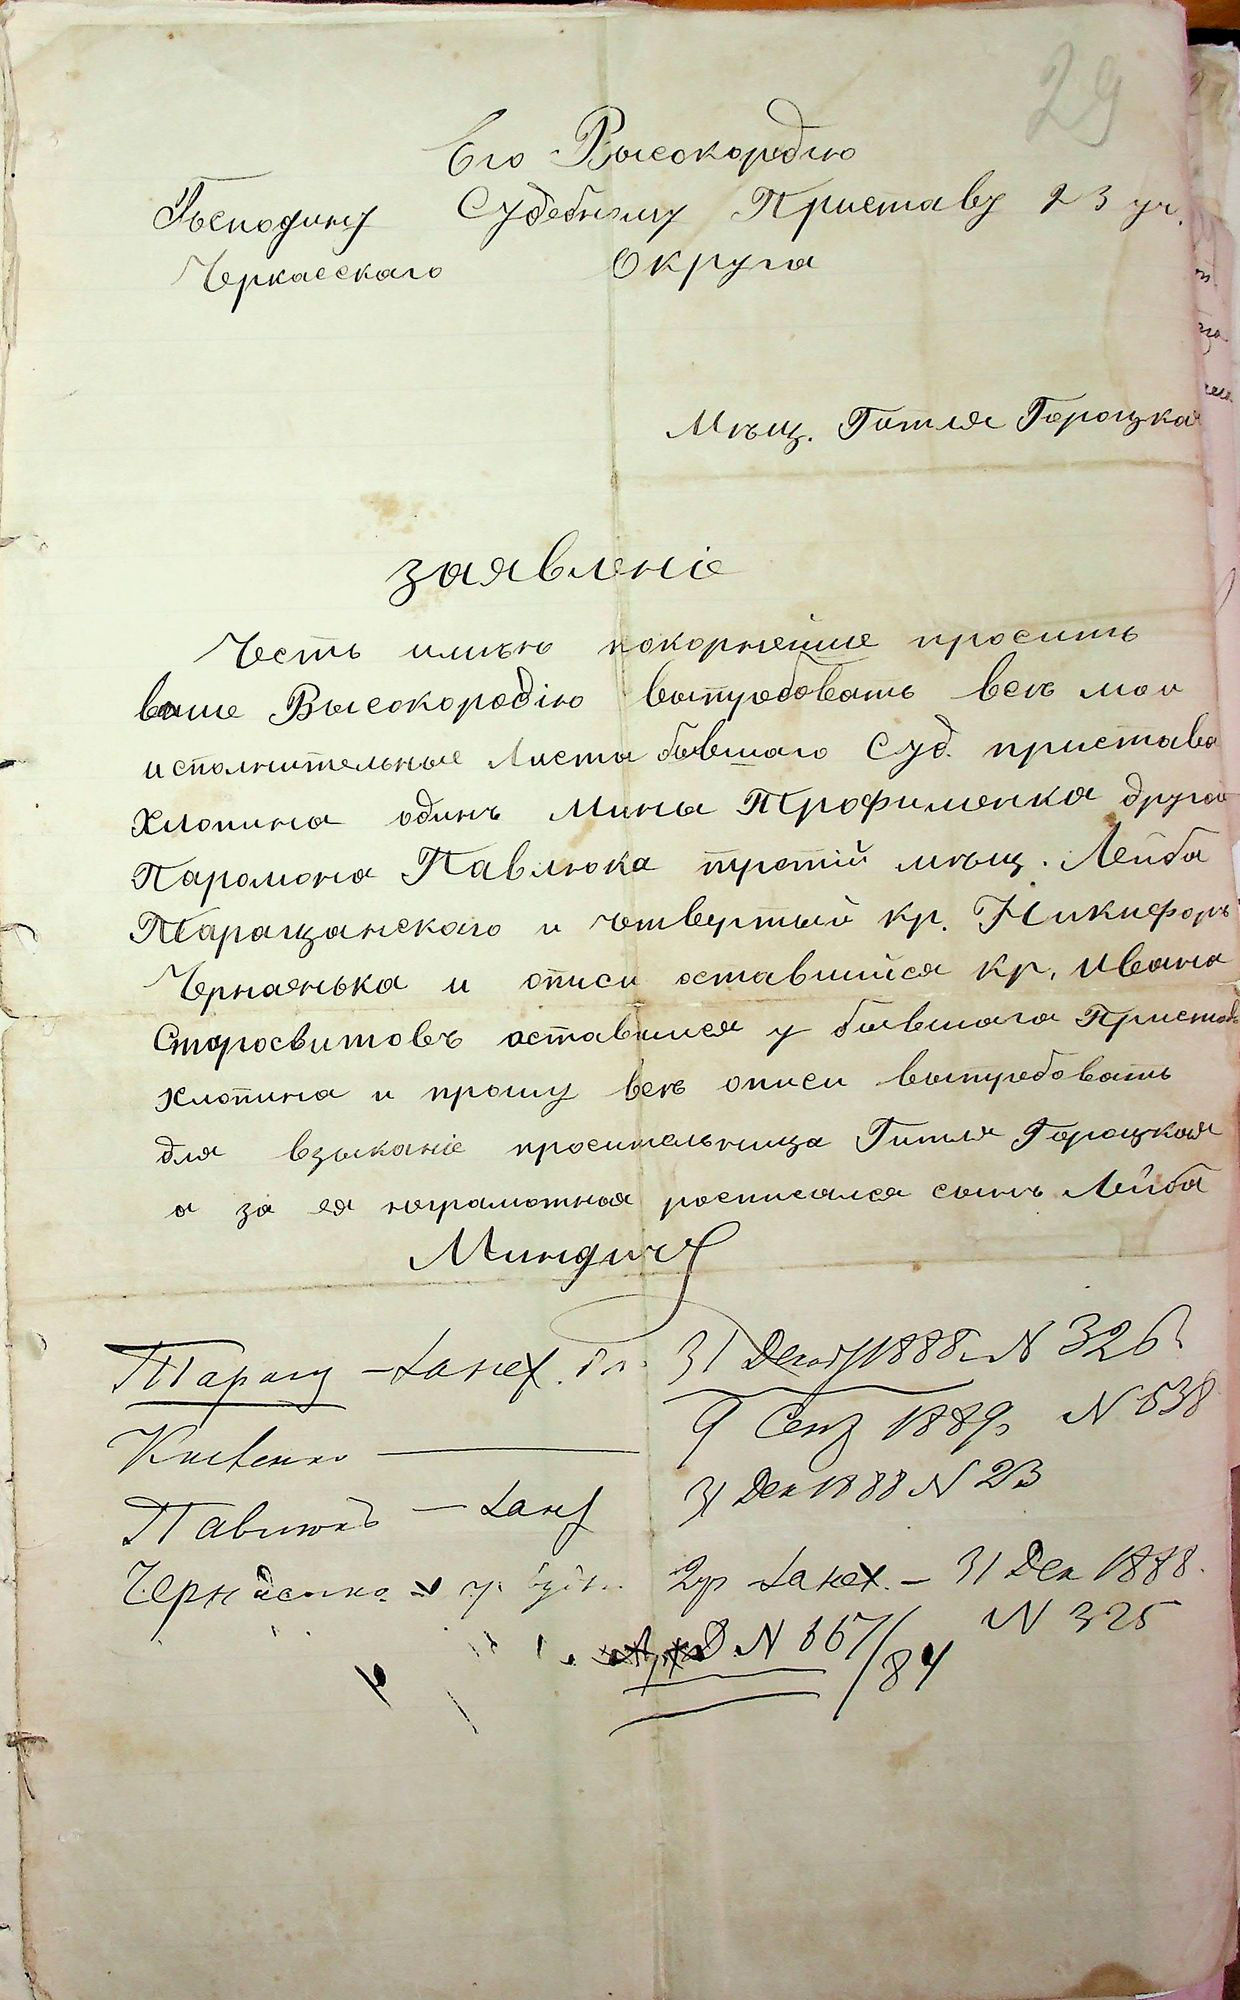 29
Его Высокородію
Господину Судебному Приставу 23 уч.
Черкасскаго Округа
Мѣщ. Гитля Горацкая
заявленіе
Честь имѣю покорнейше просить
ваше Высокородію вытребовать всѣ мои
исполнительные Листы бывшаго Суд. пристава
Хлопина одинъ Мины Трофименка другой
Парамона Павлюка третій мѣщ. Лейба
Таращанскаго и четвертый кр. Никифоръ
Черненька и описи оставшийся кр. Ивана
Старосвитовъ оставшися у бывшаго Пристава
Хлопина и прошу всѣ описи вытребовать
для взысканіе просительница Гитля Горацкая
а за ея награмотная росписался сынъ Лейба
Миндичъ
Таращ — 31 Декаб 1888 N 326
9 1889 N 538
Павлюкъ — 31 Дек 1888 N 23
— 31 Дек 1888.
N 325
N 367/84